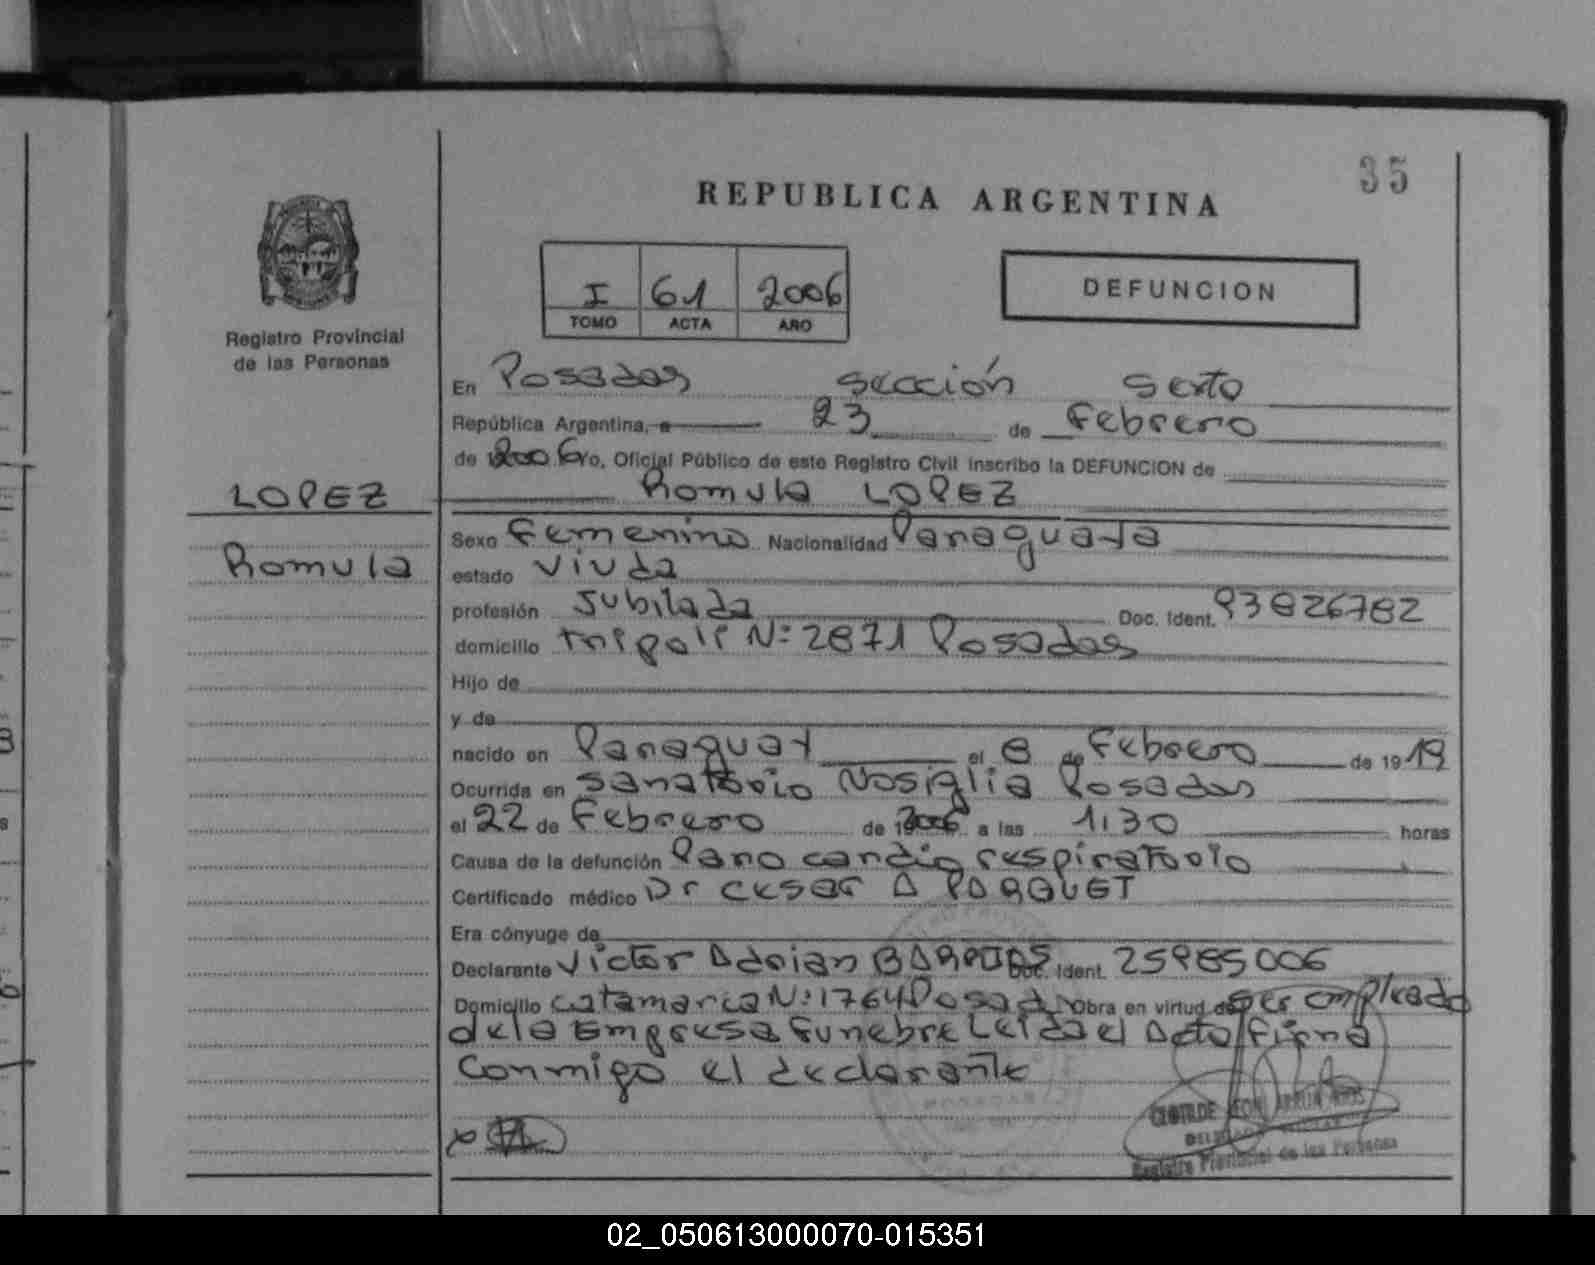 35
REPUBLICA ARGENTINA
I 61 2006
TOMO ACTA AÑO
DEFUNCION
Registro Provincial
de las Personas
LOPEZ
Romula
En Posadas sección sexto
República Argentina, a 23 de Febrero
de 2006 Yo, Oficial Público de este Registro Civil inscribo la DEFUNCION de
Romula LOPEZ
Sexo Femenino Nacionalidad Paraguaya
estado Viuda
profesión Jubilada Doc. Ident. 93826782
domicilio Tripoli Nº 2871 Posadas
Hijo de
y de
nacido en Paraguay el 8 de Febrero de 1919
Ocurrida en Sanatorio Nosiglia Posadas
el 22 de Febrero de 2006 a las 1,30 horas
Causa de la defunción Paro cardio respiratorio
Certificado médico Dr Cesar A PARQUET
Era cónyuge de
Declarante Victor Adrian Doc. Ident. 25985006
Domicilio Catamarca Nº 1764 Posadas Obra en virtud de ser empleado
de la Empresa Funebre Leida el Acta firma
Conmigo el declarante
CLOTILDE
Registro Provincial de las Personas
02_050613000070-015351